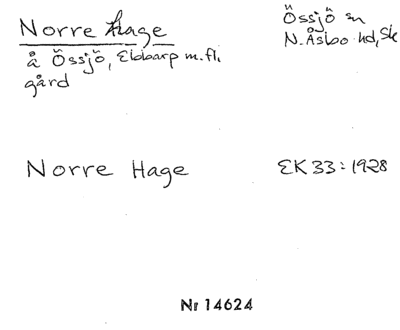 Norre Hage
å Össjö, Ebbarp m.fl.
gård
Össjö sn
N. Åsbo hd, Sk
Norre Hage
EK 33:1928
Nr 14624